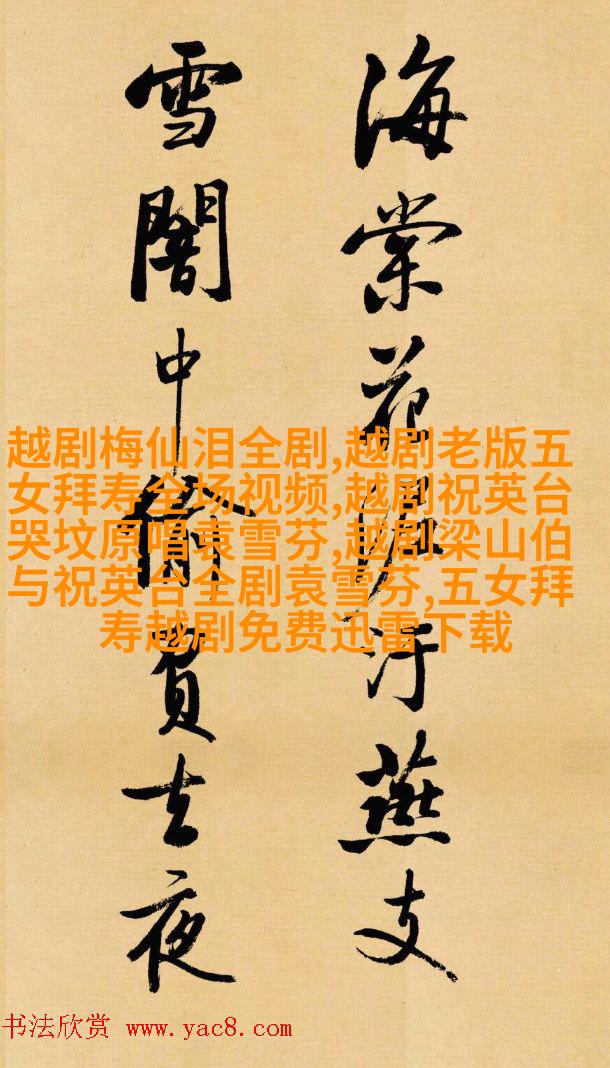 海棠花泥汙燕支
雪闇中偷負去夜
越剧梅仙泪全剧,越剧老版五
女拜寿全场视频,越剧祝英台
哭坟原唱袁雪芬,越剧梁山伯
与祝英台全剧袁雪芬,五女拜
寿越剧免费迅雷下载
书法欣赏 www.yac8.com